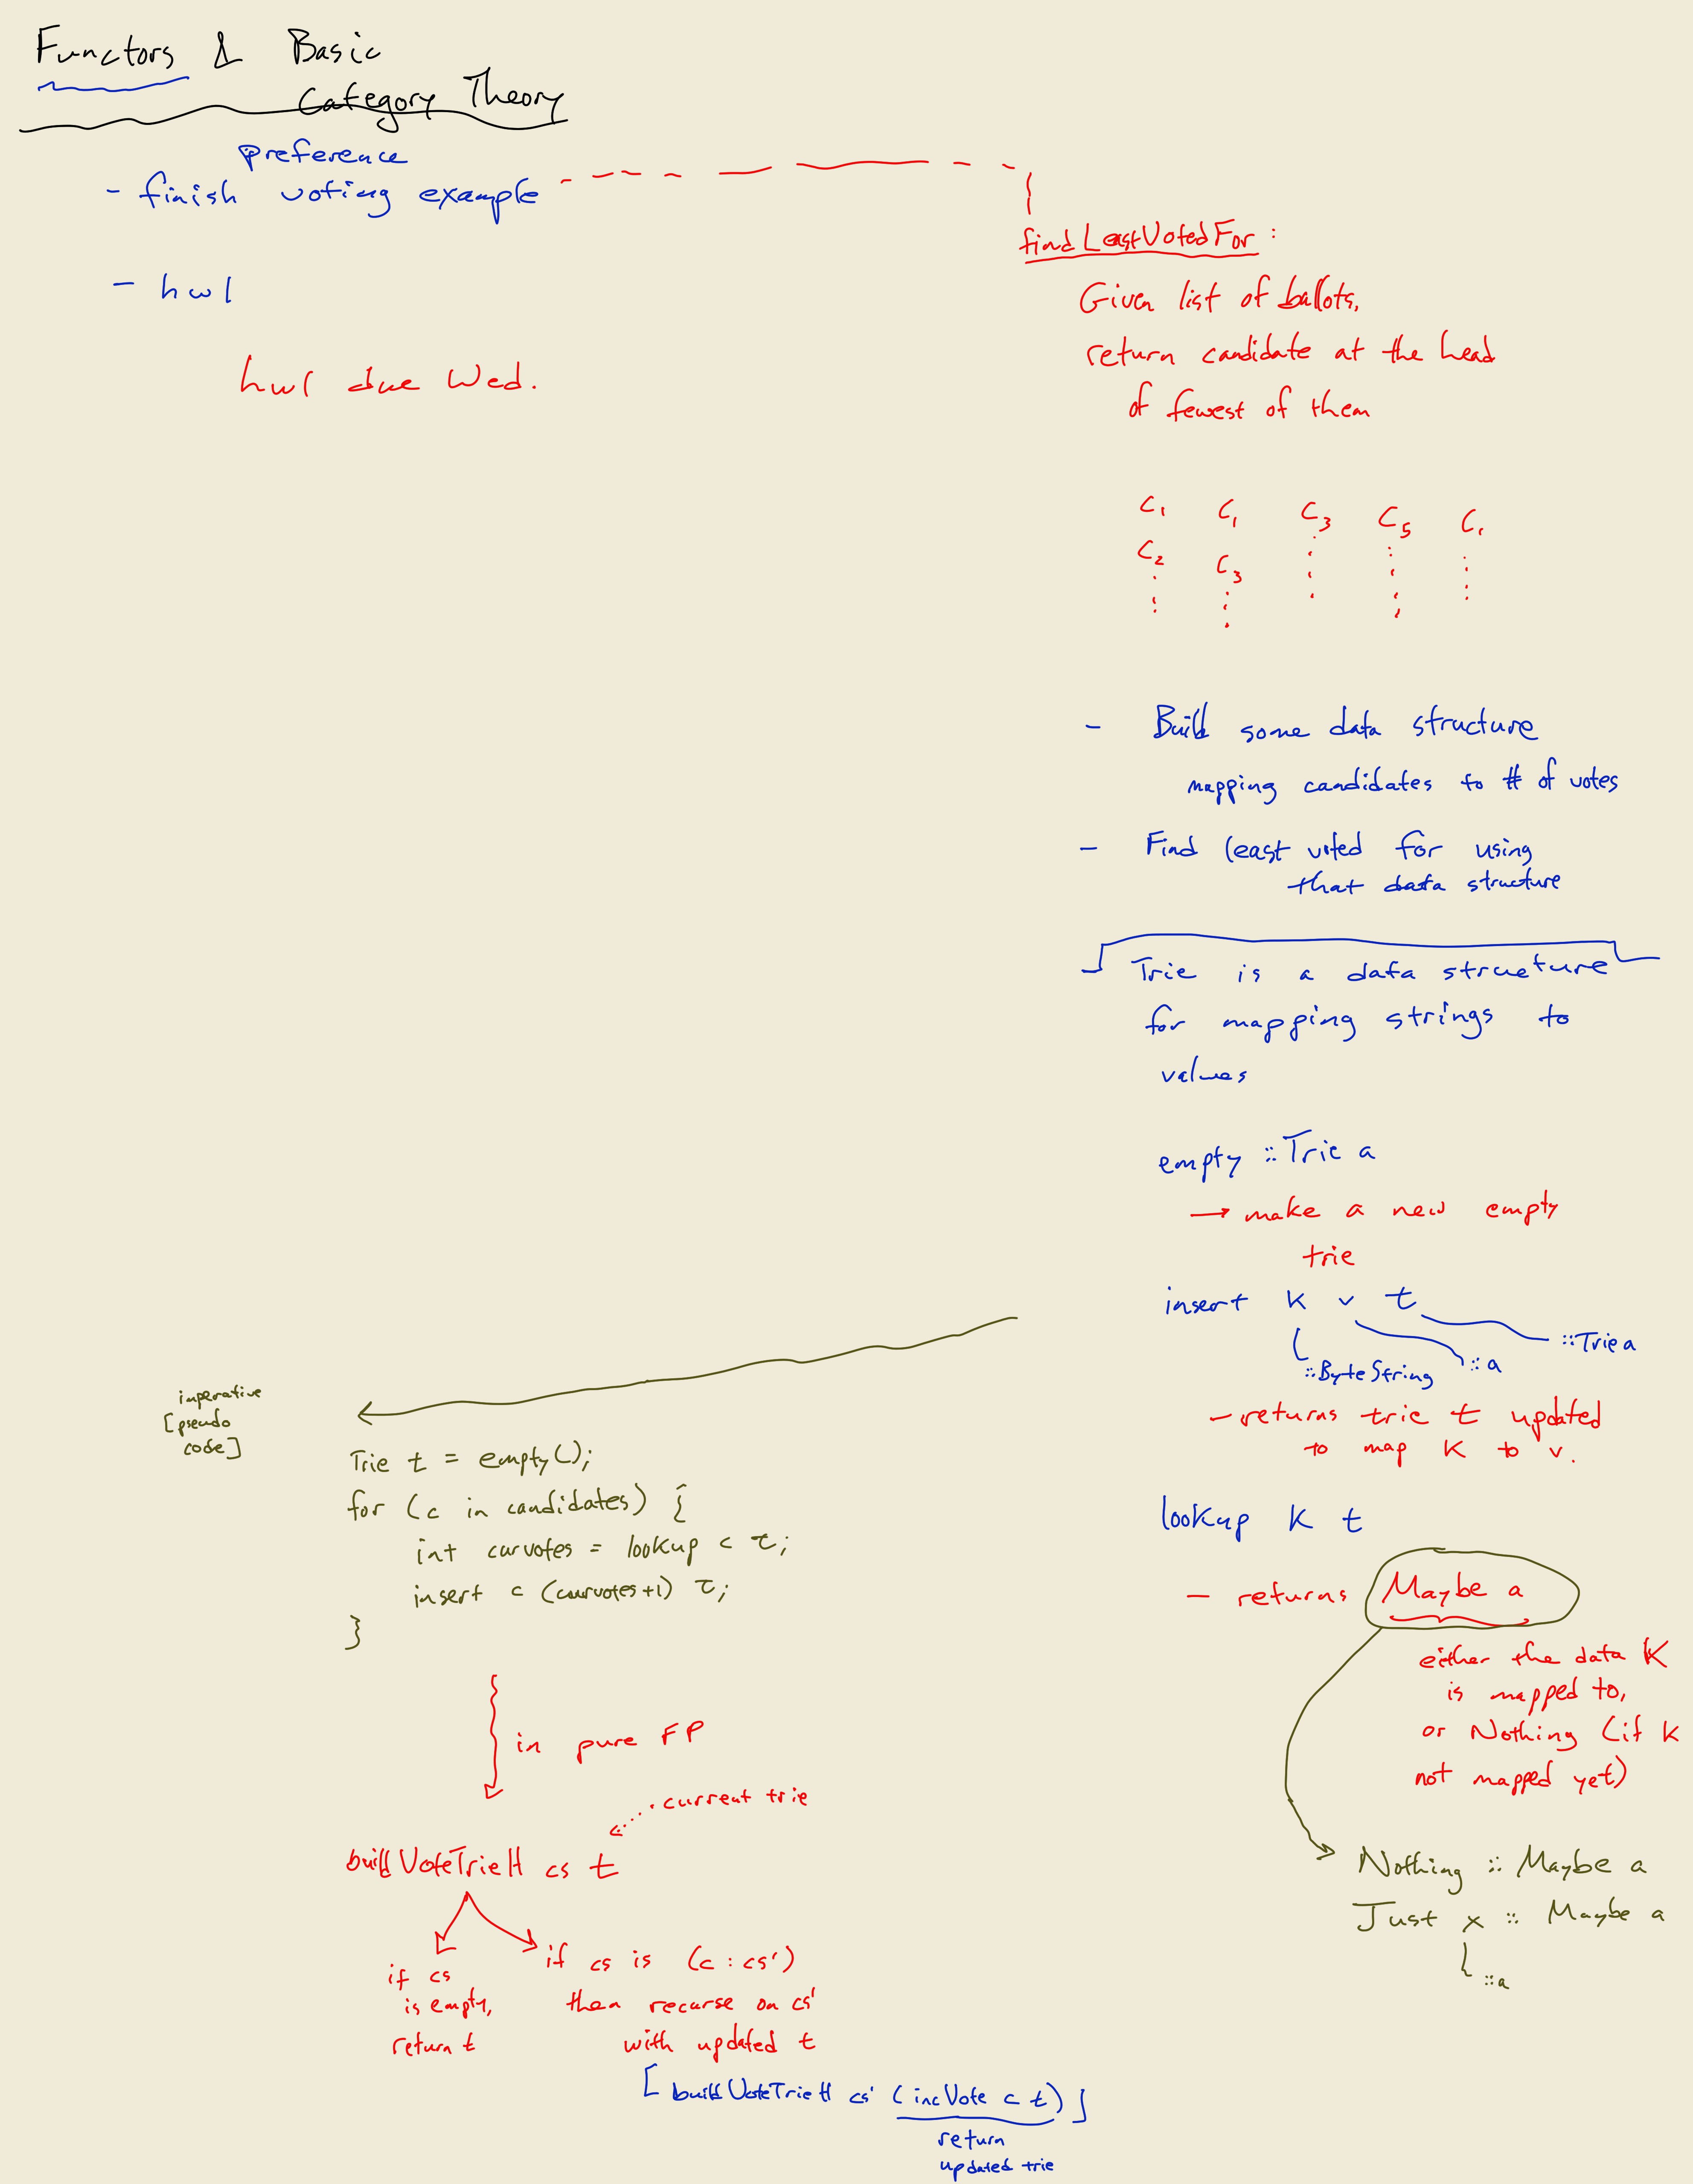 Functors & Basic
Category Theory
preference
- finish voting example
- hw1
hw1 due Wed.
findLeastVotedFor :
Given list of ballots,
return candidate at the head
of fewest of them
C1 C1 C3 C5 C1
C2 C3
- Build some data structure
mapping candidates to # of votes
- Find least voted for using
that data structure
Trie is a data structure
for mapping strings to
values
empty :: Trie a
→ make a new empty
trie
insert k v t
:: Trie a
:: ByteString :: a
- returns trie t updated
to map k to v.
lookup k t
- returns Maybe a
either the data k
is mapped to,
or Nothing (if k
not mapped yet)
Nothing :: Maybe a
Just x :: Maybe a
:: a
imperative
[pseudo
code]
Trie t = empty();
for (c in candidates) {
int curvotes = lookup c t;
insert c (curvotes+1) t;
}
in pure FP
current trie
buildVoteTrieH cs t
if cs
is empty,
return t
if cs is (c : cs')
then recurse on cs'
with updated t
[ buildVoteTrieH cs' (incVote c t) ]
return
updated trie